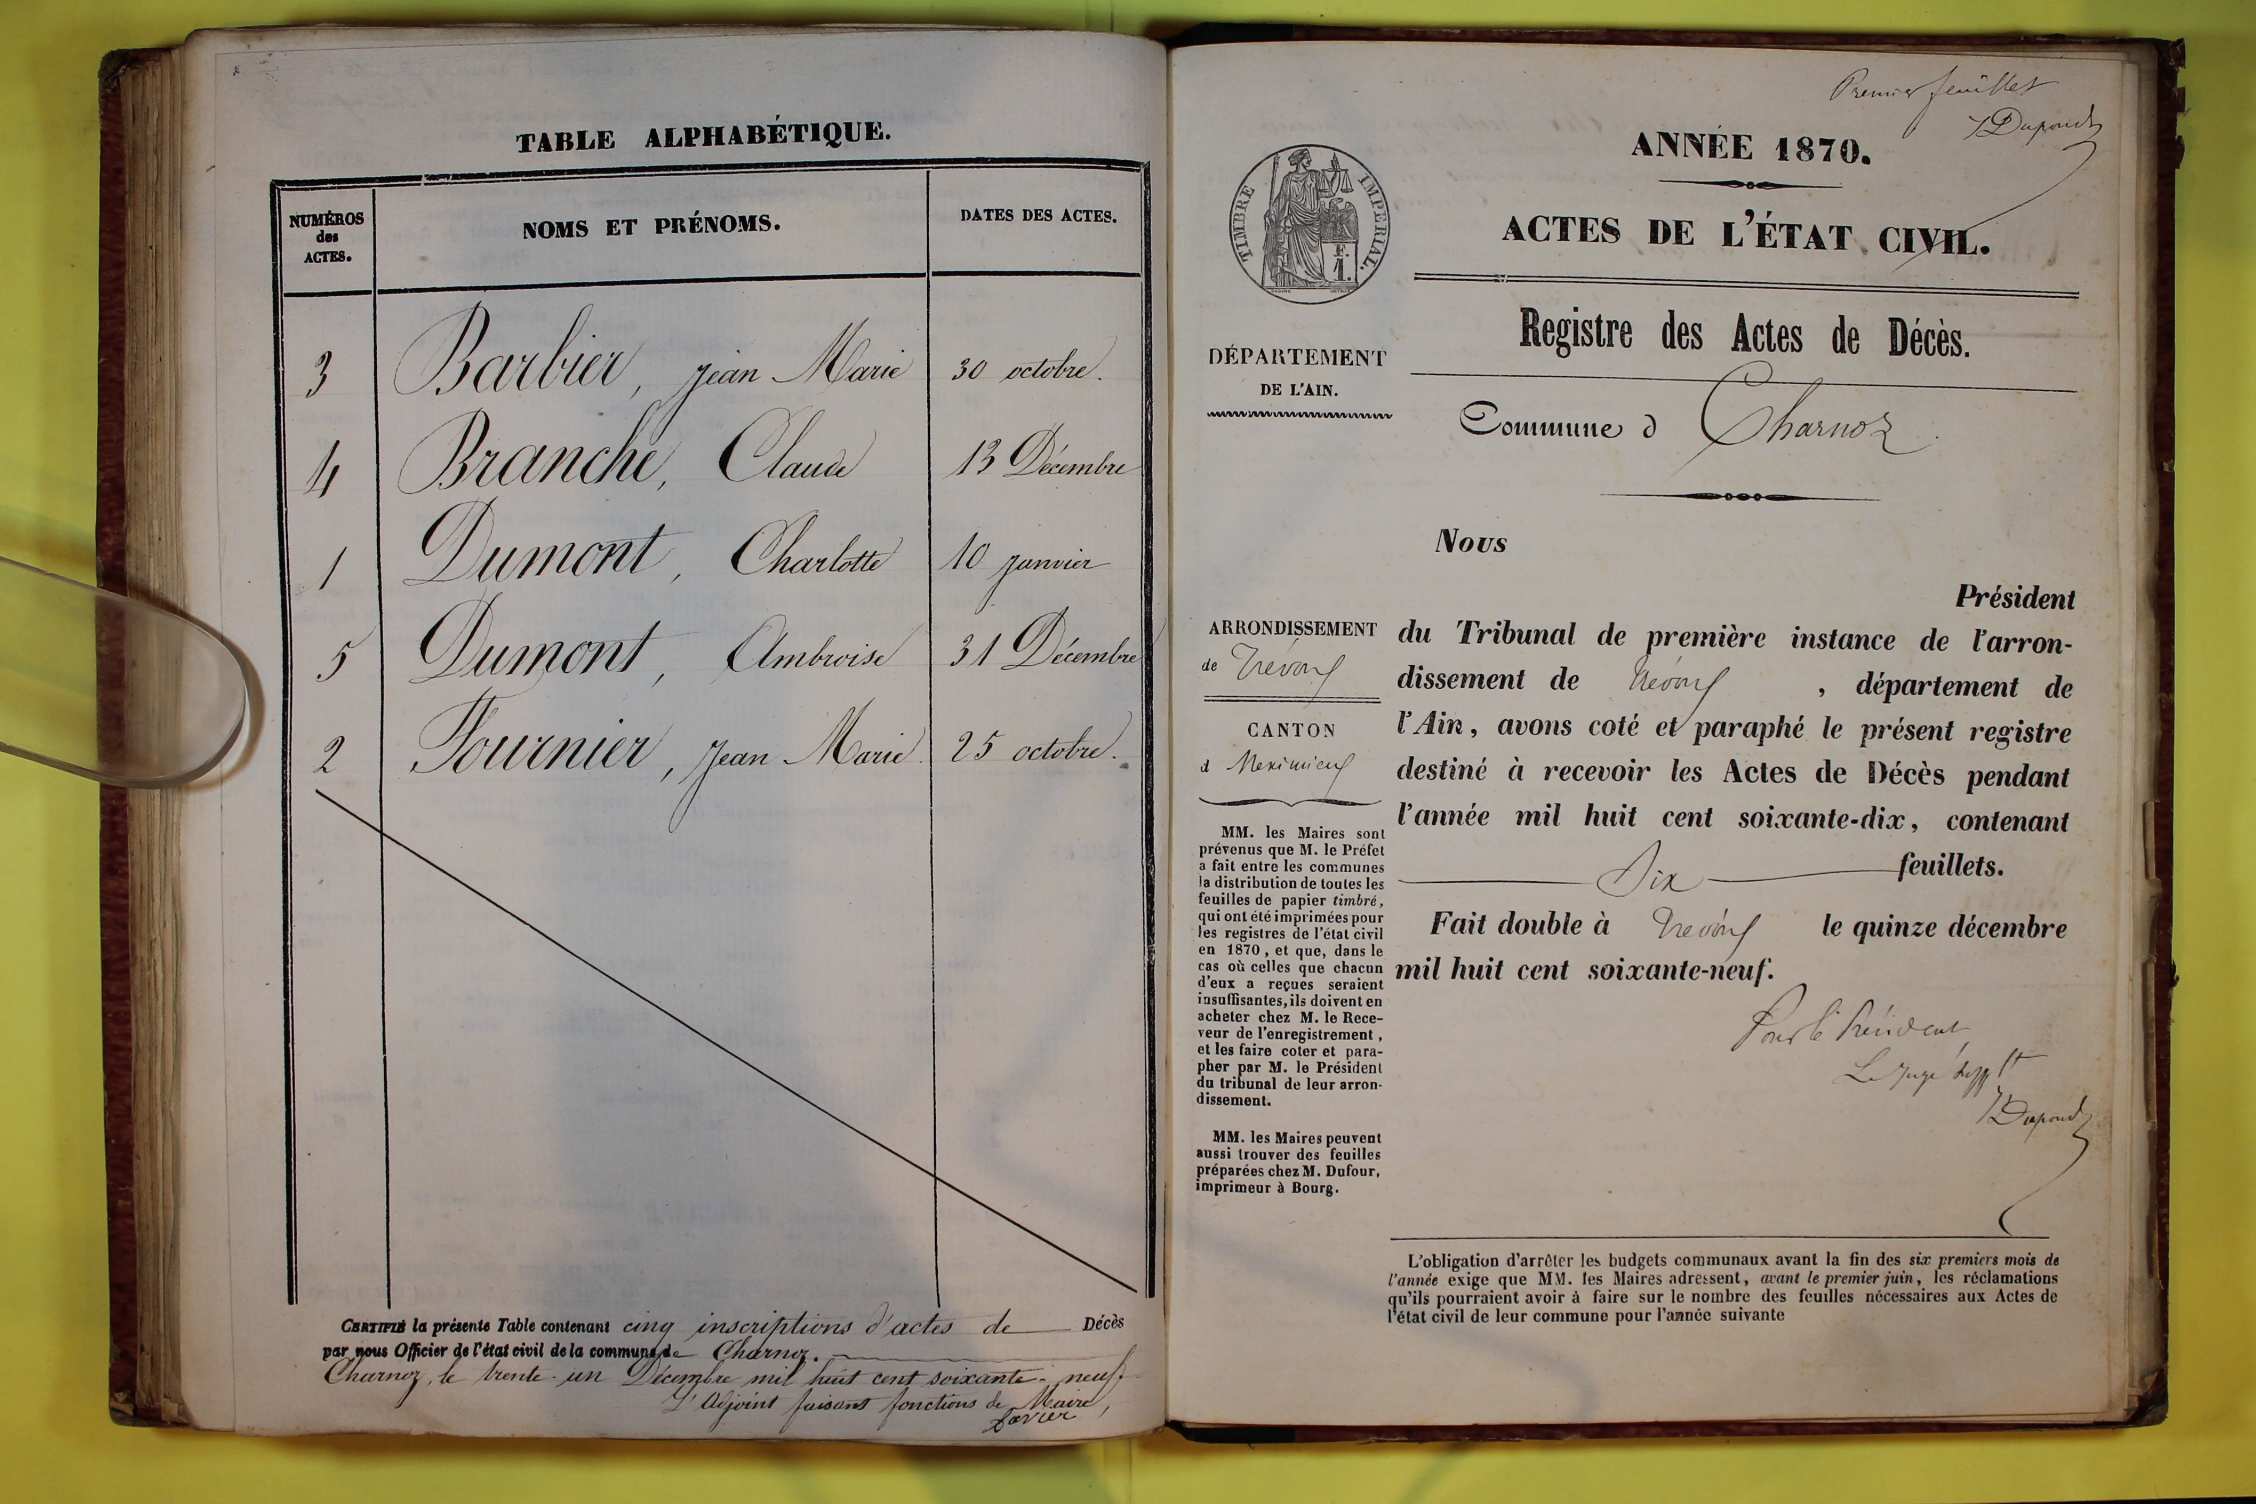 TABLE ALPHABÉTIQUE.
NUMÉROS
des
ACTES.
NOMS ET PRÉNOMS.
DATES DES ACTES.
3 Barbier, Jean Marie 30 octobre.
4 Branche, Claude 13 Décembre
1 Dumont, Charlotte 10 Janvier
5 Dumont, Ambroise 31 Décembre
2 Fournier, Jean Marie 25 octobre.
CERTIFIÉ la présente Table contenant cinq inscriptions d'actes de Décès
par nous Officier de l'état civil de la commune de Charnoz.
Charnoz, le trente-un Décembre mil huit cent soixante-neuf
L'Adjoint faisant fonctions de Maire,
Premier feuillet
Dupond
ANNÉE 1870.
ACTES DE L'ÉTAT CIVIL.
TIMBRE IMPERIAL.
F.
1.
Registre des Actes de Décès.
DÉPARTEMENT
DE L'AIN.
Commune d Charnoz
Nous
Président
du Tribunal de première instance de l'arron-
dissement de Trévoux, département de
l'Ain, avons coté et paraphé le présent registre
destiné à recevoir les Actes de Décès pendant
l'année mil huit cent soixante-dix, contenant
Six feuillets.
Fait double à Trévoux le quinze décembre
mil huit cent soixante-neuf.
Pour le Président
Le Juge suppt
Dupond
ARRONDISSEMENT
de Trévoux
CANTON
d Meximieux
MM. les Maires sont
prévenus que M. le Préfet
a fait entre les communes
la distribution de toutes les
feuilles de papier timbré,
qui ont été imprimées pour
les registres de l'état civil
en 1870, et que, dans le
cas où celles que chacun
d'eux a reçues seraient
insuffisantes, ils doivent en
acheter chez M. le Rece-
veur de l'enregistrement,
et les faire coter et para-
pher par M. le Président
du tribunal de leur arron-
dissement.
MM. les Maires peuvent
aussi trouver des feuilles
préparées chez M. Dufour,
imprimeur à Bourg.
L'obligation d'arrêter les budgets communaux avant la fin des six premiers mois de
l'année exige que MM. les Maires adressent, avant le premier juin, les réclamations
qu'ils pourraient avoir à faire sur le nombre des feuilles nécessaires aux Actes de
l'état civil de leur commune pour l'année suivante